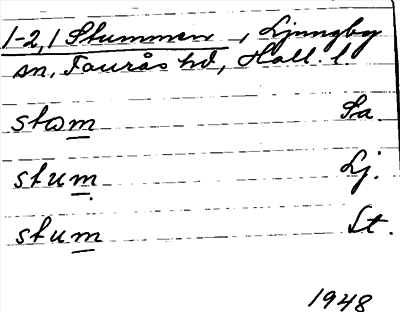 1-2,1 Stummen, Ljungby
sn, Faurås hd, Hall. l
stɷm Sa.
stum. Lj.
stum St.
1948